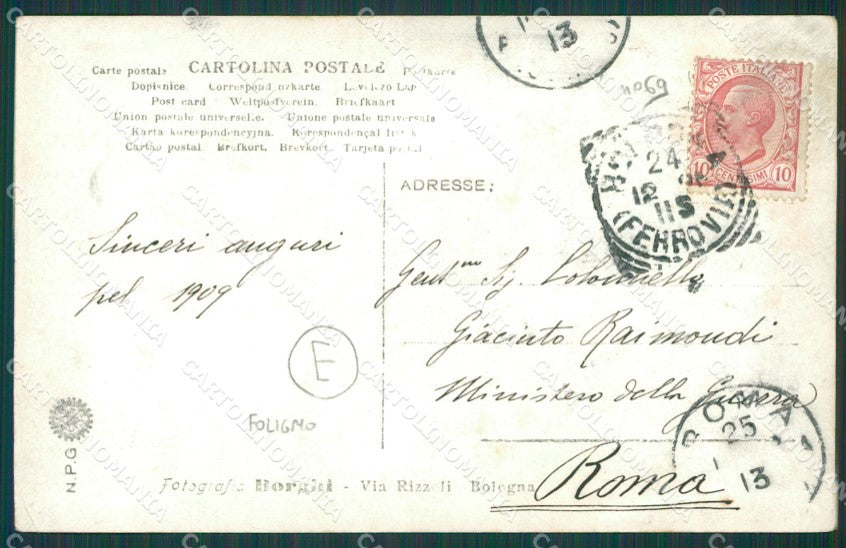 CARTOLINA POSTALE
Carte postale Postkarte
Dopisnice Correspondenzkarte
Post card Weltpostverein. Briefkaart
Union postale universelle. Unione postale universale
Karta korespondencyjna. Korespondençal
Cartão postal Brefkort. Brevkort. Tarjeta postal
ADRESSE:
POSTE ITALIANE
10 CENTESIMI 10
24
12
11S
(FERROVIA)
13
Sinceri auguri
pel 1909
Gent.mo Sig. Colonnello
Giacinto Raimondi
Ministero della Guerra
Roma
E
FOLIGNO
ROMA
25
13
N.P.G
Fotografia Borghi - Via Rizzoli Bologna
CARTOLINOMANIA